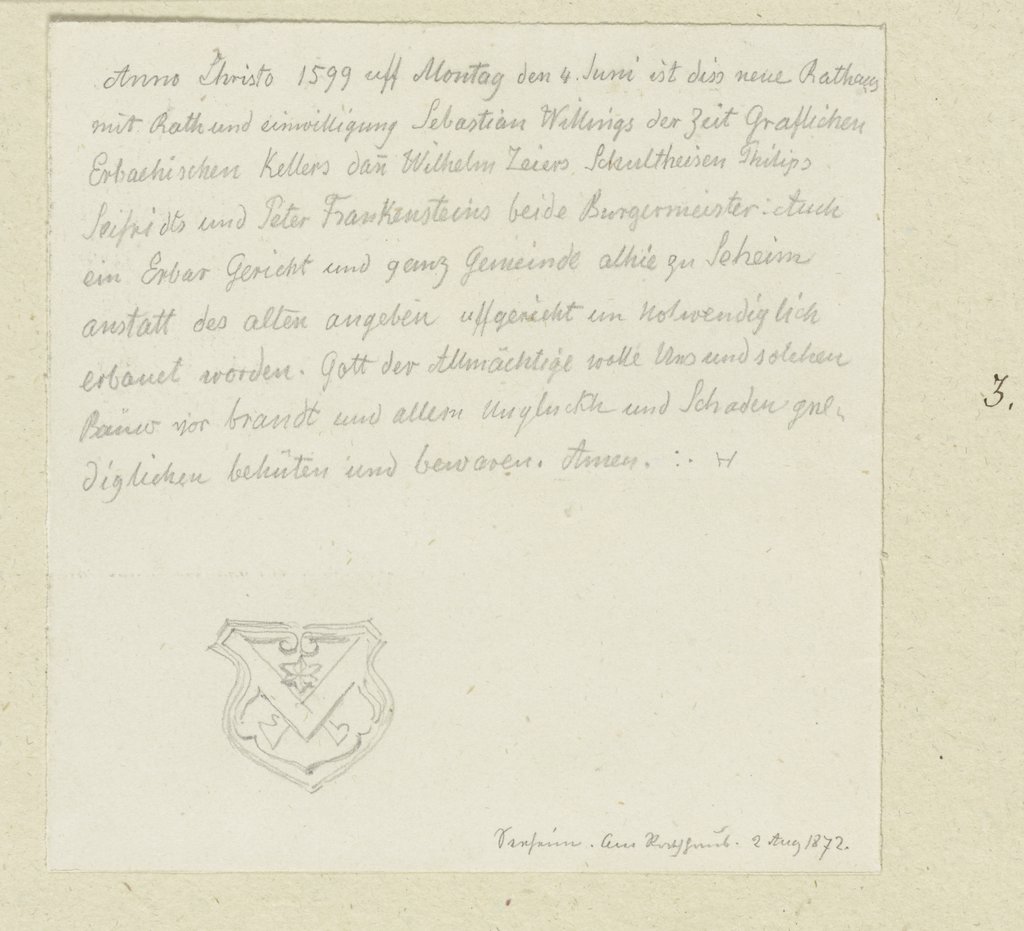 Anno Christo 1599 uff Montag den 4. Juni ist diss neue Rathaus
mit Rath und einwilligung Sebastian Willings der Zeit Graflichen
Erbachischen Kellers dañ Wilhelm Zeiers Schultheisen Philips
Seifridts und Peter Frankensteins beide Burgermeister: Auch
ein Erbar Gericht und ganz Gemeinde alhie zu Seheim
anstatt des alten angeben uffgericht un notwendiglich
erbauet worden. Gott der Allmächtige wolle Uns und solchen
Bäuw vor brandt und allem Ungluckh und Schaden gne-
diglichen behüten und bewaren. Amen. :.
3.
Seeheim. Am Rathhaus. 2 Aug 1872.